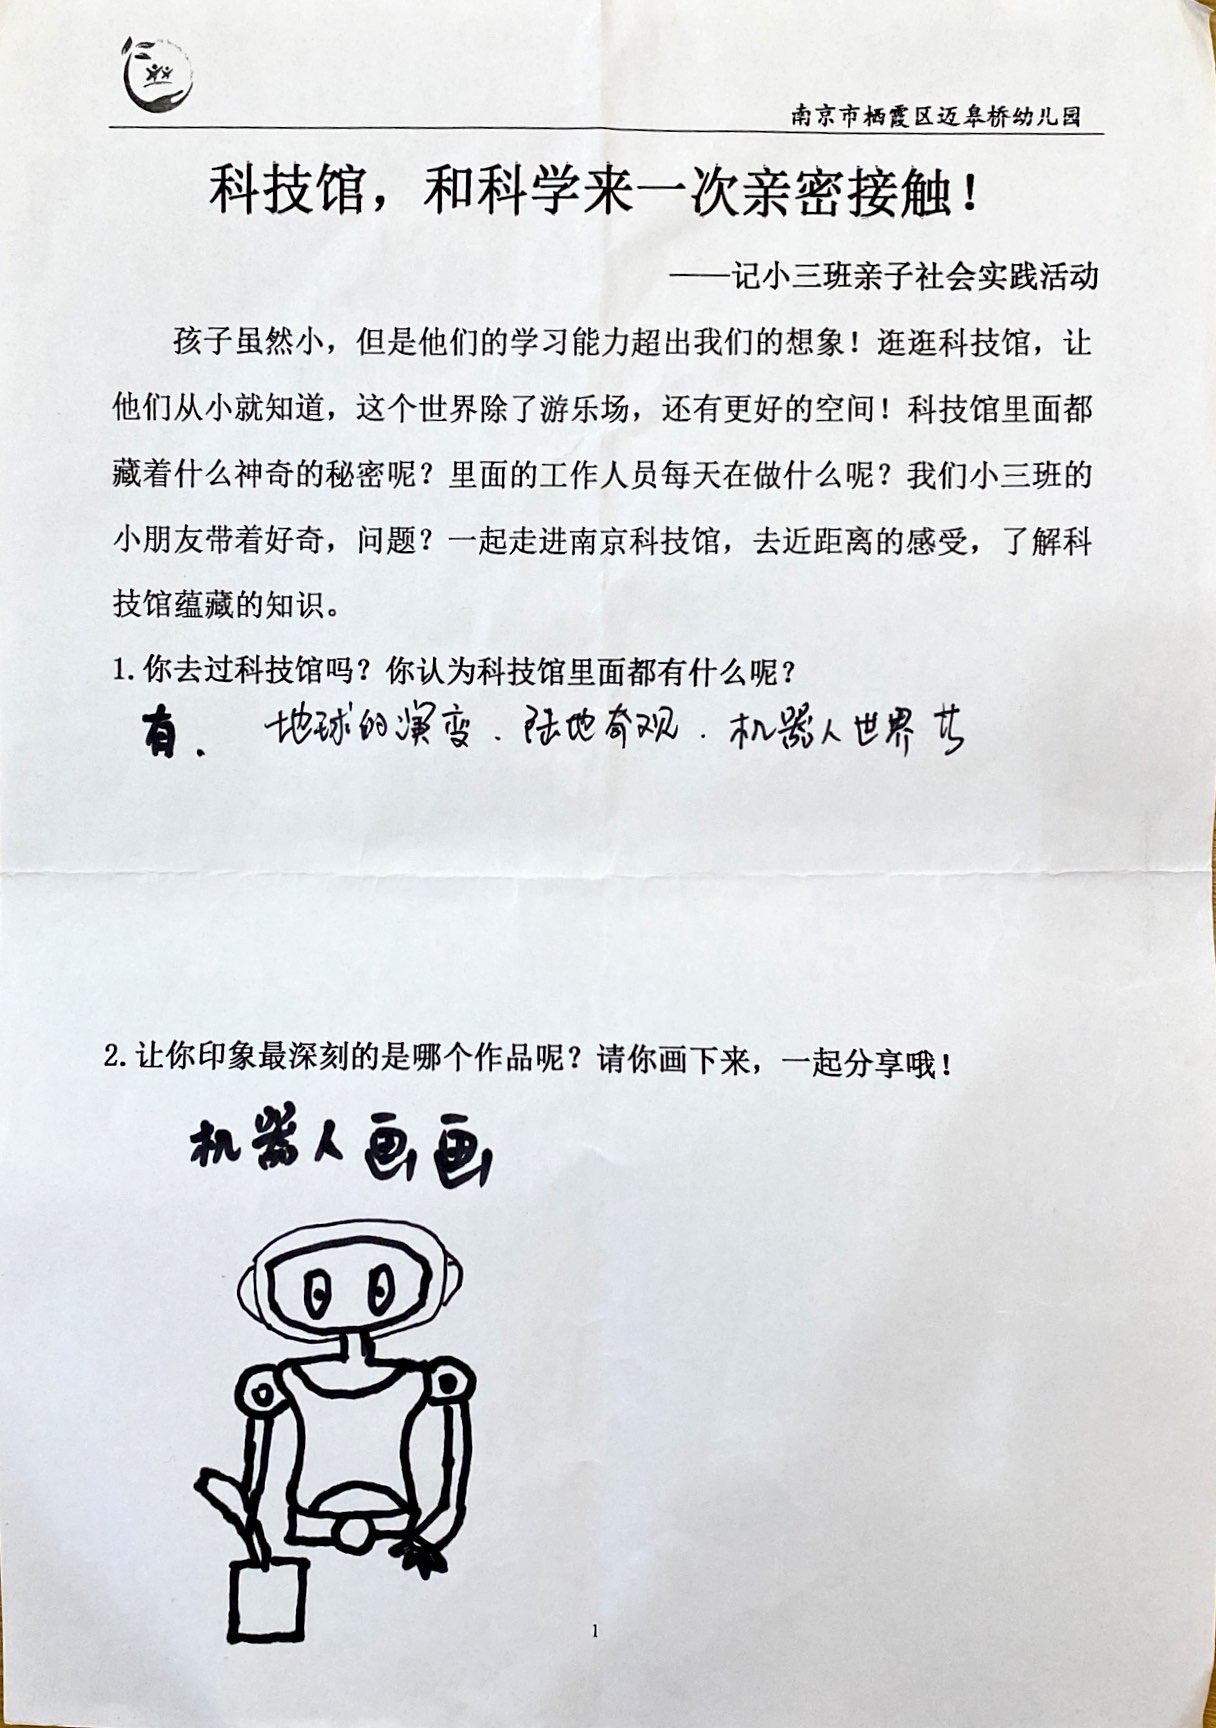 南京市栖霞区迈皋桥幼儿园
科技馆，和科学来一次亲密接触！
——记小三班亲子社会实践活动
孩子虽然小，但是他们的学习能力超出我们的想象！逛逛科技馆，让
他们从小就知道，这个世界除了游乐场，还有更好的空间！科技馆里面都
藏着什么神奇的秘密呢？里面的工作人员每天在做什么呢？我们小三班的
小朋友带着好奇，问题？一起走进南京科技馆，去近距离的感受，了解科
技馆蕴藏的知识。
1.你去过科技馆吗？你认为科技馆里面都有什么呢？
有． 地球的演变．陆地奇观．机器人世界
2.让你印象最深刻的是哪个作品呢？请你画下来，一起分享哦！
机器人画画
1